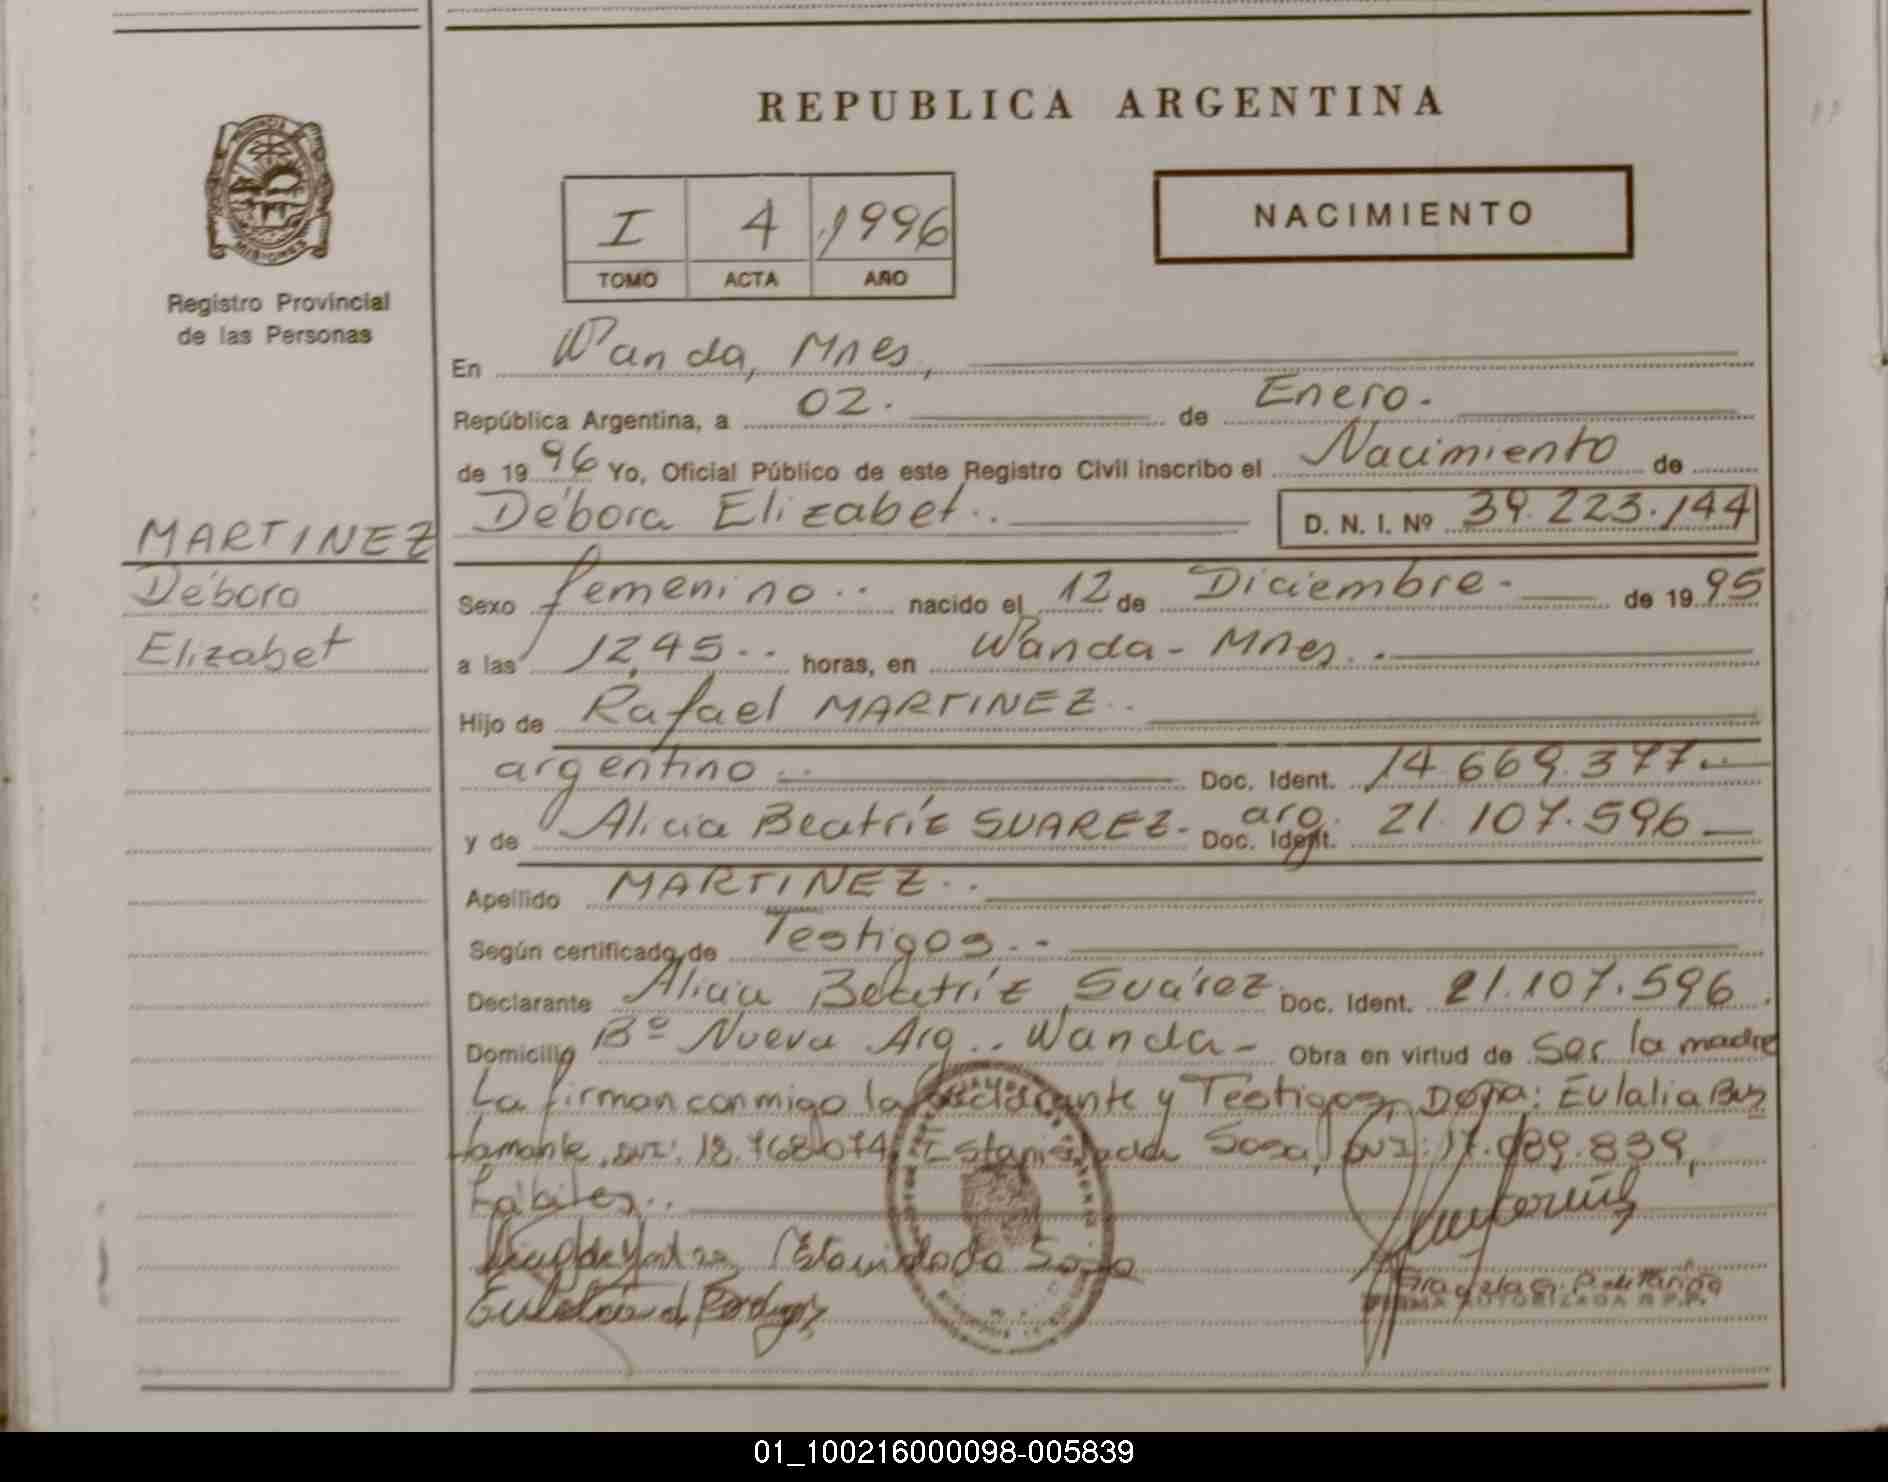 REPUBLICA ARGENTINA
PROVINCIA DE
MISIONES
Registro Provincial
de las Personas
I 4 1996
TOMO ACTA AÑO
NACIMIENTO
En Wanda, Mnes,
República Argentina, a 02. de Enero.
de 1996 Yo, Oficial Público de este Registro Civil inscribo el Nacimiento de
Débora Elizabet.. D. N. I. Nº 39.223.144
MARTINEZ
Débora
Elizabet
Sexo femenino.. nacido el 12 de Diciembre - de 1995
a las 12,45.. horas, en Wanda - Mnes..
Hijo de Rafael MARTINEZ..
argentino .. Doc. Ident. 14.669.377.-
y de Alicia Beatríz SUAREZ- arg. Doc. Ident. 21.107.596
Apellido MARTINEZ..
Según certificado de Testigos..
Declarante Alicia Beatríz Suárez Doc. Ident. 21.107.596
Domicilio Bº Nueva Arg.. Wanda - Obra en virtud de Ser la madre
La firman conmigo la declarante y Testigos, Doña: Eulalia Bus
tamante, 18.768.074, Estanislada Sosa, 17.089.839,
hábiles..
Estanislada Sosa
FIRMA AUTORIZADA R.P.P.
01_100216000098-005839